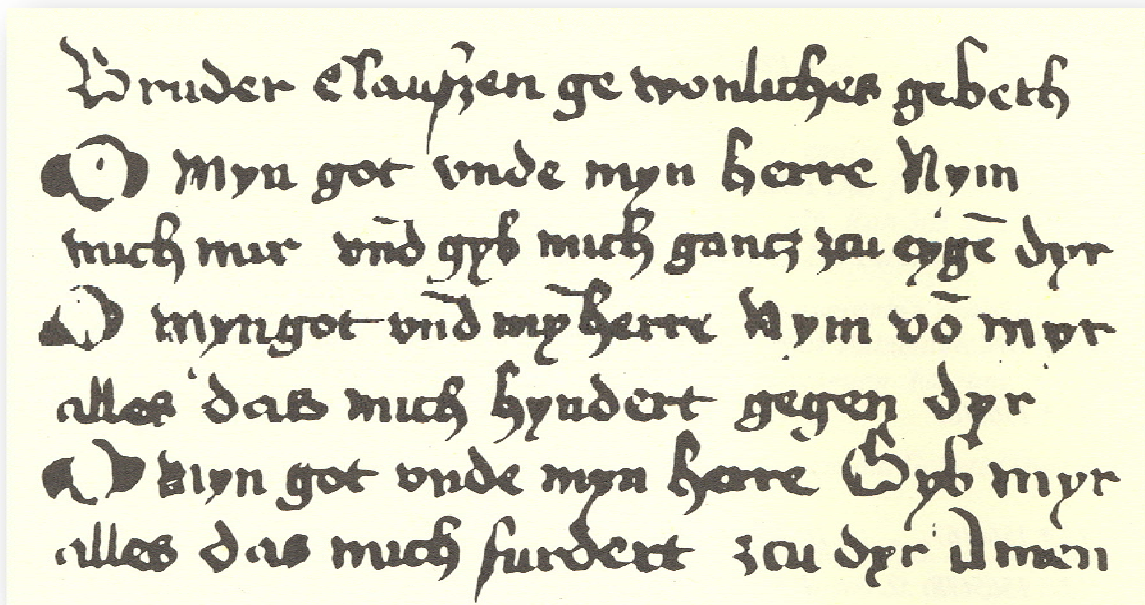 Bruder Claußen gewonliches gebeth
O Myn got vnde myn herre Nym
mich mir vn̄d gyb mich gantz zcu eygē dyr
O myn got vn̄d mȳ herre Nym vō myr
alles das mich hyndert gegen dyr
O Myn got vnde myn herre Gyb myr
alles das mich furdert zcu dyr Amen